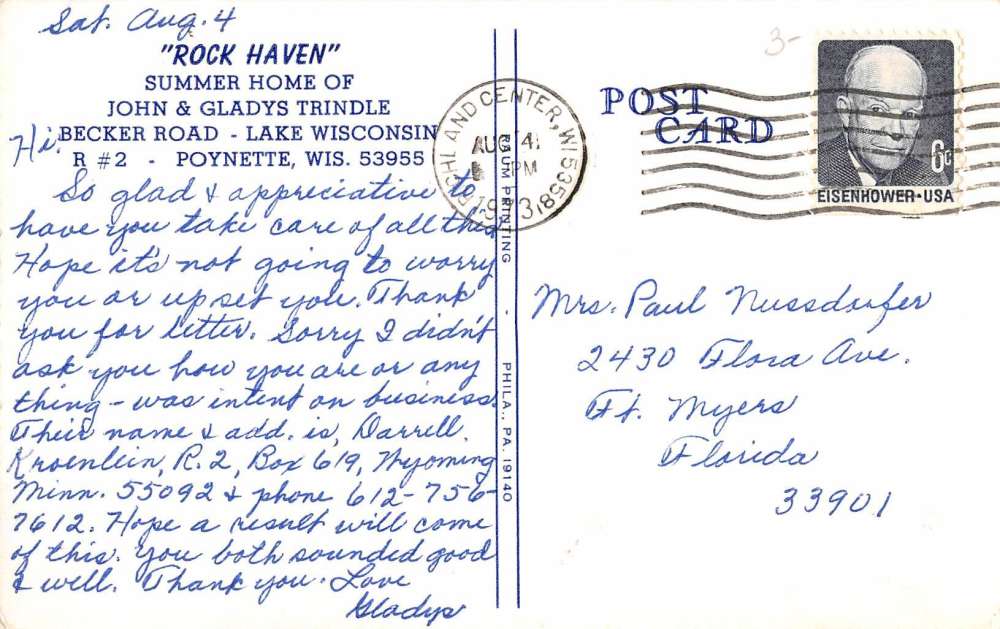 Sat. Aug. 4
"ROCK HAVEN"
SUMMER HOME OF
JOHN & GLADYS TRINDLE
BECKER ROAD - LAKE WISCONSIN
R #2 - POYNETTE, WIS. 53955
Hi.
So glad & appreciative to
have you take care of all this
Hope it's not going to worry
you or upset you. Thank
you for letter. Sorry I didn't
ask you how you are or any
thing - was intent on business.
Their name & add. is, Darrell
Kroenlein, R.2, Box 619, Wyoming
Minn. 55092 & phone 612-756-
7612. Hope a result will come
of this. You both sounded good
& well. Thank you. Love
Gladys
BAUM PRINTING · PHILA., PA. 19140
RICHLAND CENTER, WI 53581
AUG 4
PM
1973
POST
CARD
3-
6c
EISENHOWER·USA
Mrs. Paul Nussdorfer
2430 Flora Ave.
Ft. Myers
Florida
33901